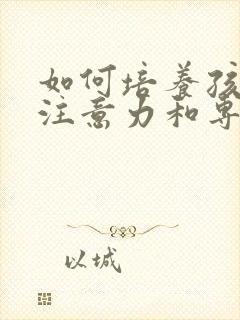 如何培养孩
注意力和专
以城